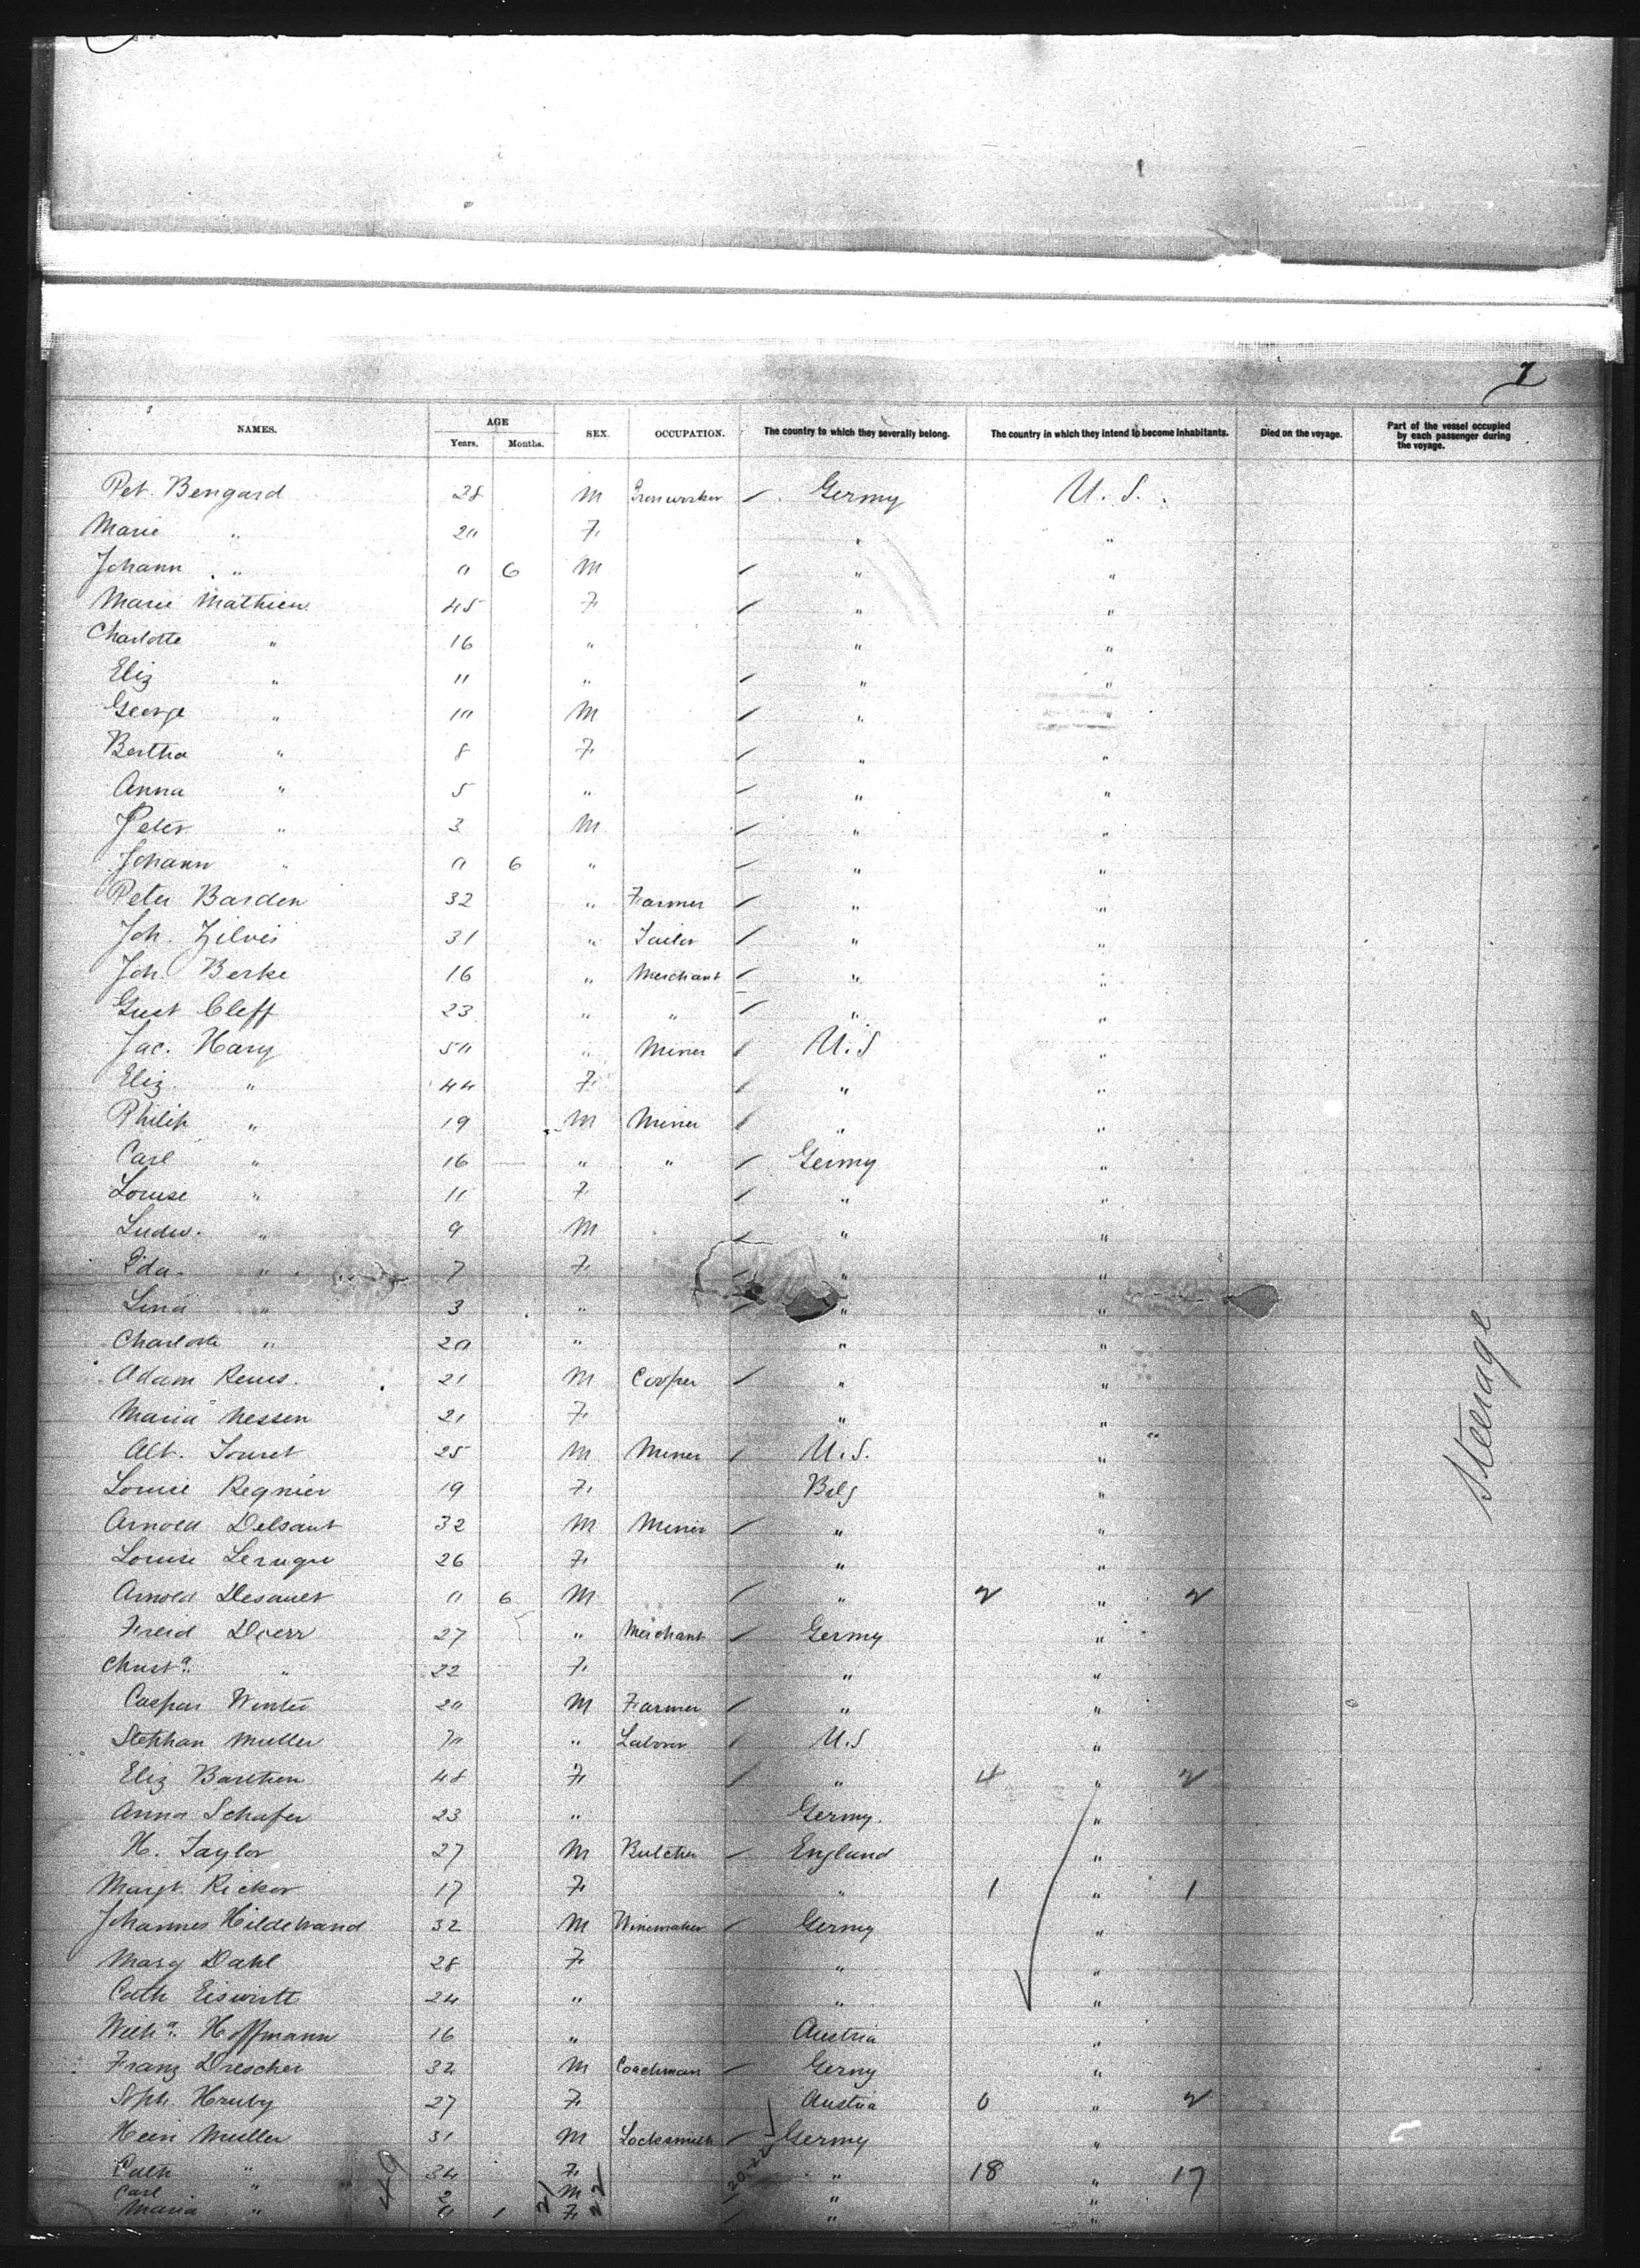 7
NAMES. AGE Years. Months. SEX. OCCUPATION. The country to which they severally belong. The country in which they intend to become inhabitants. Died on the voyage. Part of the vessel occupied by each passenger during the voyage.
Pet. Bengard 28 M Ironworker Germy U. S.
Marie " 20 F. " "
Johann " 0 6 M " "
Marie Mathieu 45 F. " "
Charlotte " 16 " " "
Eliz " 11 " " "
George " 10 M " "
Bertha " 8 F. " "
Anna " 5 " " "
Peter " 3 M " "
Johann " 0 6 " " "
Peter Barden 32 " Farmer " "
Joh. Zilvis 31 " Tailor " "
Joh. Berke 16 " Merchant " "
Gust Cleff 23 " " " "
Jac. Hary 50 " Miner U.S "
Eliz " 44 F. " "
Philip " 19 M Miner " "
Carl " 16 " " Germy "
Louise " 11 F. " "
Ludw. " 9 M " "
Ida " 7 F. " "
Lina " 3 " " "
Charlotte " 20 " " "
Adam Reuss. 21 M Cooper " "
Maria Nessen 21 F. " "
Alb. Touret 25 M Miner U.S. "
Louise Regnier 19 F. Belg "
Arnold Delsaut 32 M Miner " "
Louise Leruque 26 F. " "
Arnold Desault 0 6 M " 2 " 2
Freid Doerr 27 " Merchant Germy "
Christa. " 22 F. " "
Caspar Winter 20 M Farmer " "
Stephan Muller 70 " Laborer U.S "
Eliz Barthen 48 F. " 4 " 2
Anna Schafer 23 " Germy. "
H. Taylor 27 M Butcher England "
Margt. Ricker 17 F. " 1 " 1
Johannes Hildebrand 32 M Winemaker Germy "
Mary Dahl 28 F. " "
Cath Eiswirth 24 " " "
Wilha. Hoffmann 16 " Austria "
Franz Drescher 32 M Coachman Germy "
Soph. Hruby 27 F. Austria 0 " 2
Hein Muller 31 M Locksmith Germy "
Cath " 34 F. " 18 " 17
Carl " 2 M " "
Maria " 0 1 F. " "
Steerage
49 21 22